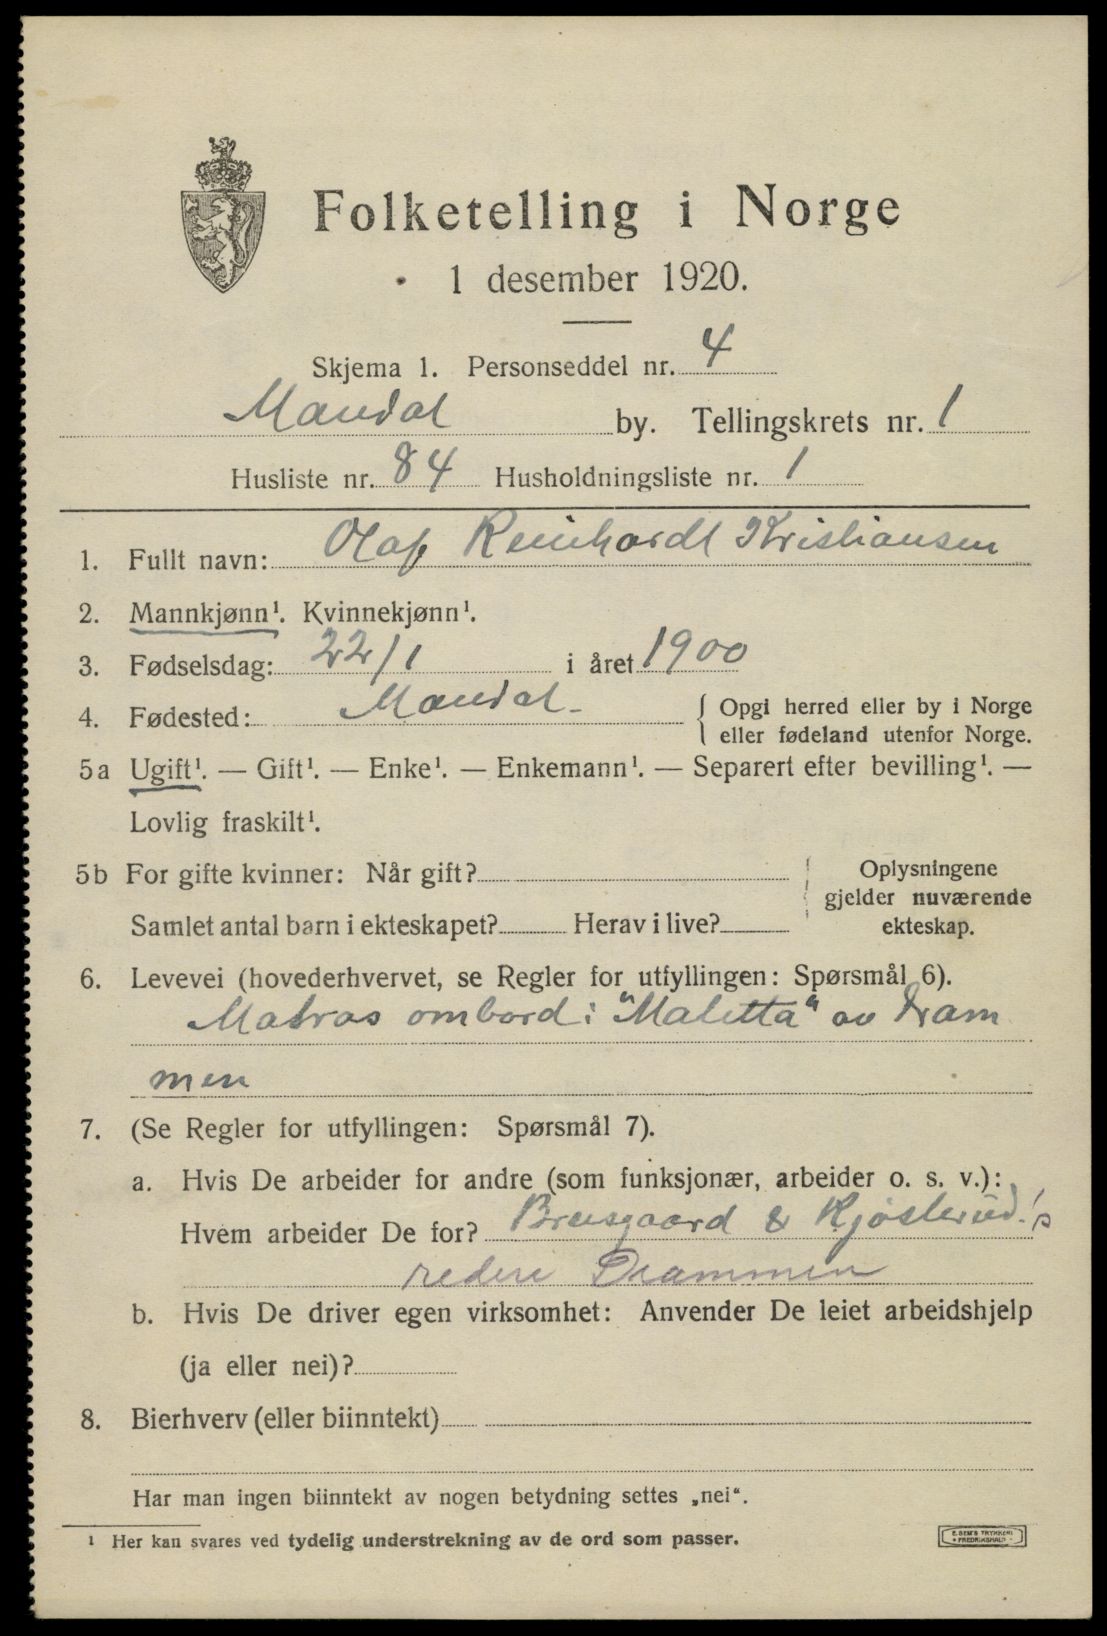 Folketelling i Norge
1 desember 1920.
Skjema 1. Personseddel nr. 4
Mandal by. Tellingskrets nr. 1
Husliste nr. 84 Husholdningsliste nr. 1
1. Fullt navn: Olaf Reinhardt Kristiansen
2. Mannkjønn¹. Kvinnekjønn¹.
3. Fødselsdag: 22/1 i året 1900
4. Fødested: Mandal - { Opgi herred eller by i Norge
eller fødeland utenfor Norge.
5a Ugift¹. — Gift¹. — Enke¹. — Enkemann¹. — Separert efter bevilling¹. —
Lovlig fraskilt¹.
5b For gifte kvinner: Når gift? Oplysningene
gjelder nuværende
Samlet antal barn i ekteskapet? Herav i live? ekteskap.
6. Levevei (hovederhvervet, se Regler for utfyllingen: Spørsmål 6).
Matros ombord i "Maletta" av Dram
men
7. (Se Regler for utfyllingen: Spørsmål 7).
a. Hvis De arbeider for andre (som funksjonær, arbeider o. s. v.):
Hvem arbeider De for? Bruusgaard & Kjøsterud's
rederi Drammen
b. Hvis De driver egen virksomhet: Anvender De leiet arbeidshjelp
(ja eller nei)?
8. Bierhverv (eller biinntekt)
Har man ingen biinntekt av nogen betydning settes „nei“.
¹ Her kan svares ved tydelig understrekning av de ord som passer.
E. SEM'S TRYKKERI
• FREDRIKSHALD •